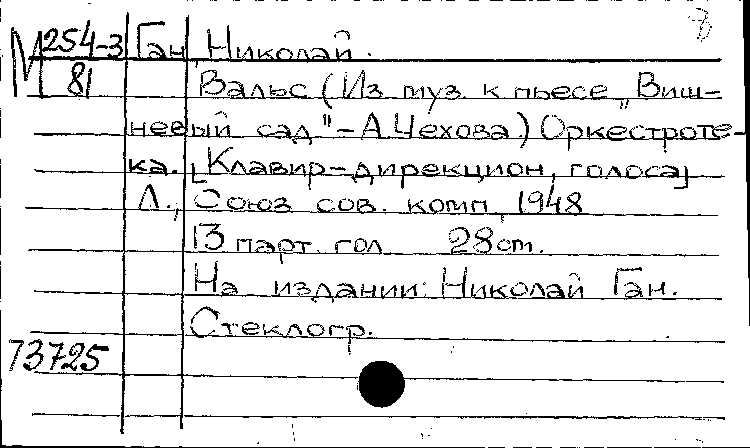 М 254-3 Ган, Николай.
81 Вальс (Из муз. к пьесе „Виш-
невый сад" - А. Чехова) Оркестроте-
ка. [Клавир-дирекцион, голоса]
Л., Союз сов. комп., 1948
13 парт. гол 28 cm.
На издании: Николай Ган.
Стеклогр.
73725